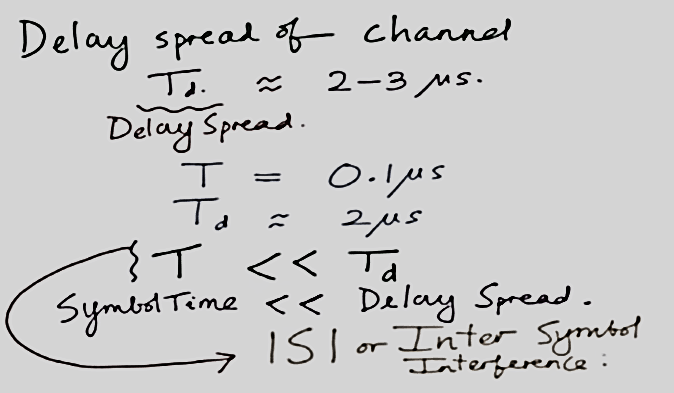 Delay spread of channel
Td. ≈ 2-3 μs.
Delay Spread.
T = 0.1μs
Td ≈ 2μs
T << Td
Symbol Time << Delay Spread.
ISI or Inter Symbol
Interference: